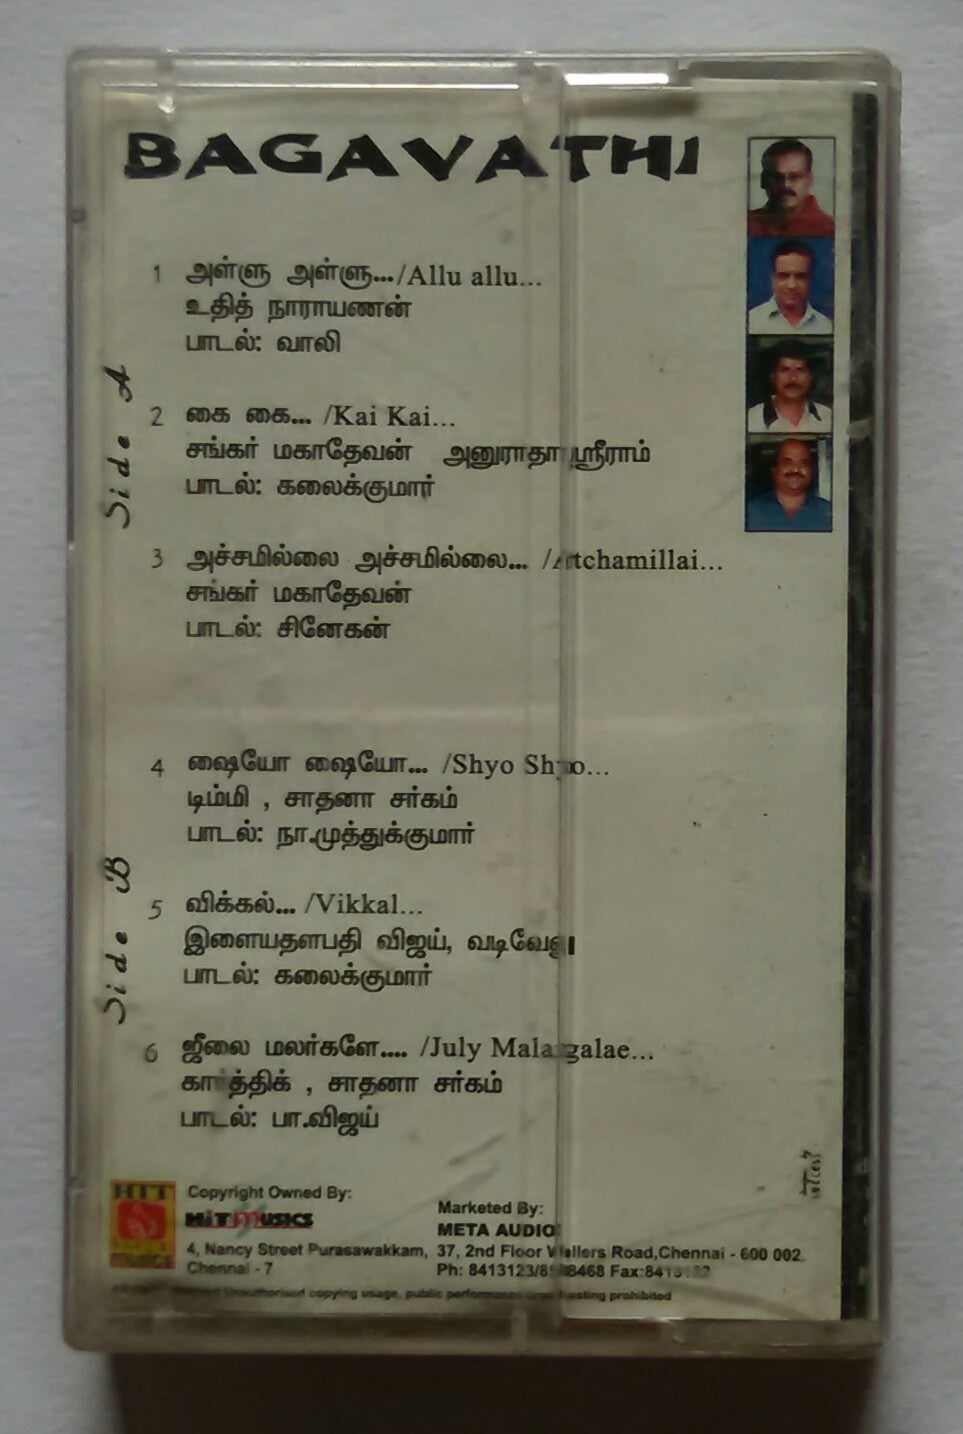 BAGAVATHI
Side A
1 அள்ளு அள்ளு.../Allu allu...
உதித் நாராயணன்
பாடல்: வாலி
2 கை கை... /Kai Kai...
சங்கர் மகாதேவன் அனுராதா ஸ்ரீராம்
பாடல்: கலைக்குமார்
3 அச்சமில்லை அச்சமில்லை... /Atchamillai...
சங்கர் மகாதேவன்
பாடல்: சினேகன்
Side B
4 ஷையோ ஷையோ... /Shyo Shyo...
டிம்மி , சாதனா சர்கம்
பாடல்: நா.முத்துக்குமார்
5 விக்கல்... /Vikkal...
இளையதளபதி விஜய், வடிவேலு
பாடல்: கலைக்குமார்
6 ஜீலை மலர்களே.... /July Malargalae...
கார்த்திக் , சாதனா சர்கம்
பாடல்: பா.விஜய்
HIT
MUSICS
Copyright Owned By:
HiT MUSICS
4, Nancy Street Purasawakkam,
Chennai - 7
Marketed By:
META AUDIO
37, 2nd Floor Wallers Road,Chennai - 600 002.
Ph: 8413123/ Fax:
Unauthorised copying usage, public performance prohibited